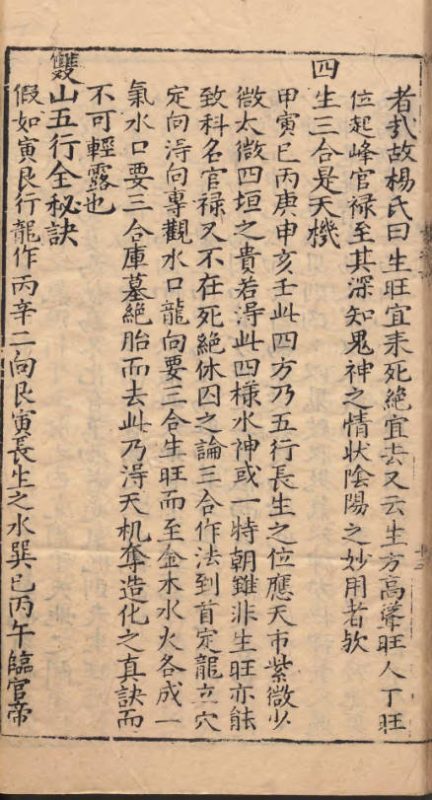 者㢤故楊氏曰生旺宜来死絶宜去又云生方高聳旺人丁旺
位起峰官禄至其深知鬼神之情状陰陽之妙用者欤
四生三合是天機
甲寅巳丙庚申亥壬此四方乃五行長生之位應天市紫微少
微太微四垣之貴若淂此四様水神或一特朝雖非生旺亦能
致科名官禄又不在死絶休囚之論三合作法到首定龍立穴
定向淂向專觀水口龍向要三合生旺而至金木水火各成一
氣水口要三合庫墓絶胎而去此乃淂天机奪造化之真訣而
不可輕露也
雙山五行全秘訣
假如寅艮行龍作丙辛二向艮寅長生之水巽巳丙午臨官帝